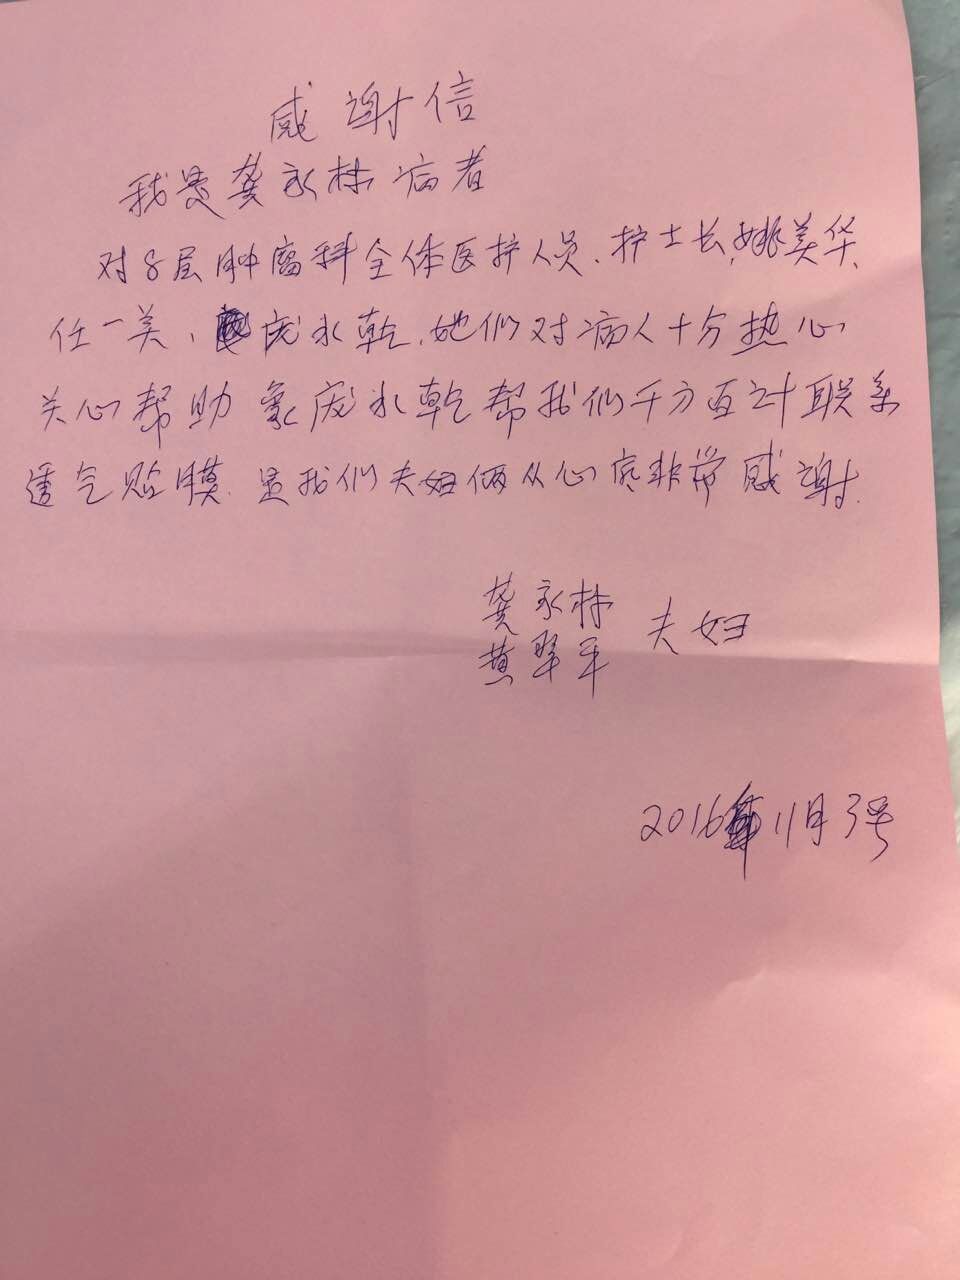 感谢信
我是龚永林病者
对8层肿瘤科全体医护人员、护士长,姚美华、
任一美、庞水乾,她们对病人十分热心
关心帮助 象庞水乾帮我们千方百计联系
透气贴膜 是我们夫妇俩从心底非常感谢.
龚永林
黄翠平 夫妇
2016年11月3号